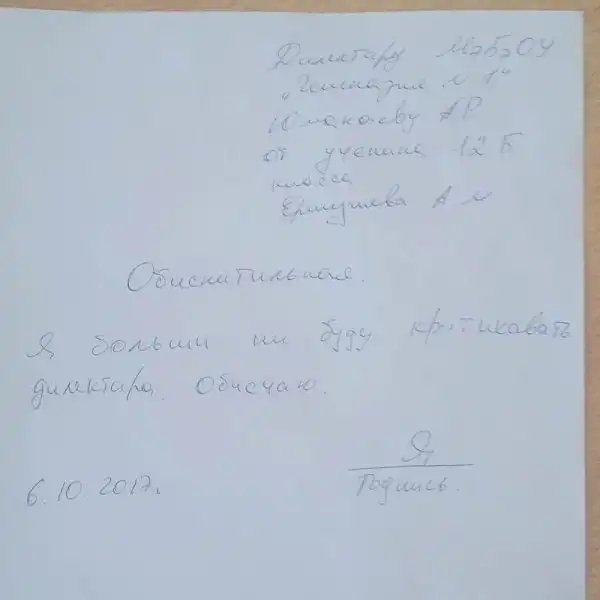 Дилектару МэБэОУ
"Гемназия N 1"
Юманаеву АР
от ученика 12 Б
класса
Ермушева А
Обиснитильная.
Я больши ни буду критикавать
дилектара. Обисчаю.
Я
6.10 2017г.
Подпись.